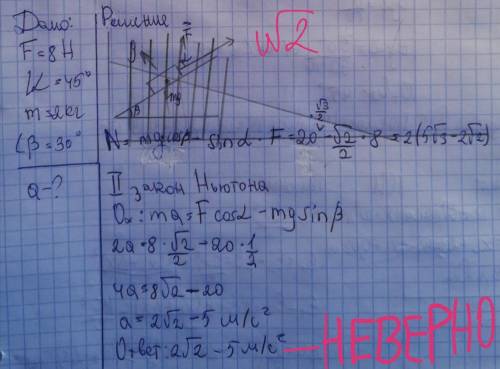 Дано:
F=8Н
α=45°
m=2кг
∠β=30°
a-?
Решение
√2
N
F
α
mg
β
√3/2
N= mgcosβ - sinα · F = 20 - √2/2 · 8 = 2(5√3-2√2)
II закон Ньютона
Ox: ma=Fcosα-mgsinβ
2a=8·√2/2-20·1/2
4a=8√2-20
a=2√2-5 м/с²
Ответ: 2√2-5 м/с² — НЕВЕРНО